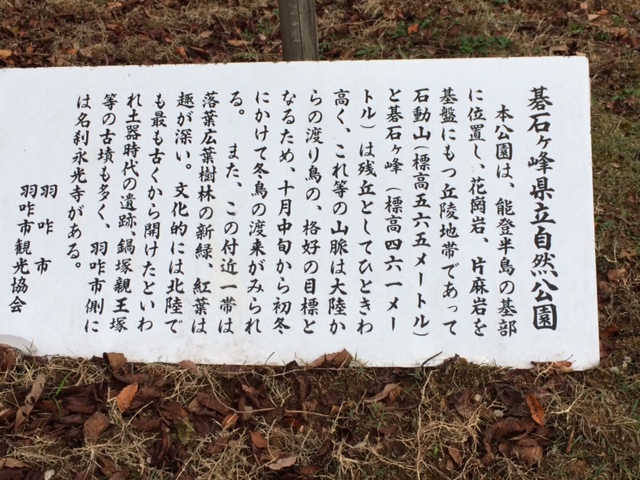 碁石ヶ峰県立自然公園
本公園は、能登半島の基部
に位置し、花崗岩、片麻岩を
基盤にもつ丘陵地帯であって
石動山(標高五六五メートル)
と碁石ヶ峰(標高四六一メー
トル)は残丘としてひときわ
高く、これ等の山脈は大陸か
らの渡り鳥の、格好の目標と
なるため、十月中旬から初冬
にかけて冬鳥の渡来がみられ
る。 また、この付近一帯は
落葉広葉樹林の新緑、紅葉は
趣が深い。文化的には北陸で
も最も古くから開けたといわ
れ土器時代の遺跡、鍋塚親王塚
等の古墳も多く、羽咋市側に
は名刹永光寺がある。
羽咋市
羽咋市観光協会